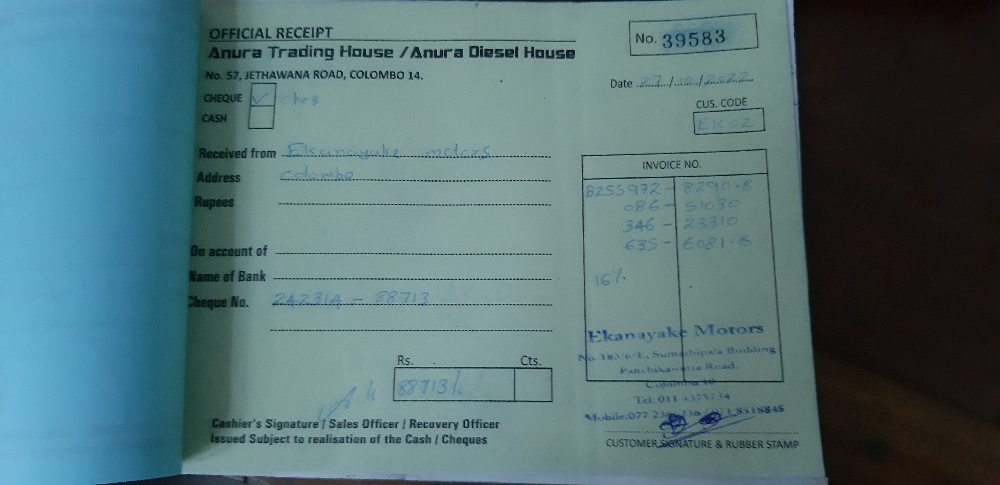 OFFICIAL RECEIPT
No. 39583
Anura Trading House / Anura Diesel House
No. 57, JETHAWANA ROAD, COLOMBO 14.
Date 27/10/2022
CHEQUE ✓ ches
CASH
CUS. CODE
EK02
Received from Ekanayake motors
Address Colombo
Rupees
On account of
Name of Bank
Cheque No. 242314 - 88713
INVOICE NO.
B255972 - 8290-8
086 - 51030
346 - 23310
635 - 6081-6
16%
Rs. Cts.
88713/-
Cashier's Signature / Sales Officer / Recovery Officer
Issued Subject to realisation of the Cash / Cheques
Ekanayake Motors
No. 183 Sumathipala Building
Panchikawatta Road,
Colombo 10
Tel: 011 4375734
Mobile:077 8518845
CUSTOMER SIGNATURE & RUBBER STAMP